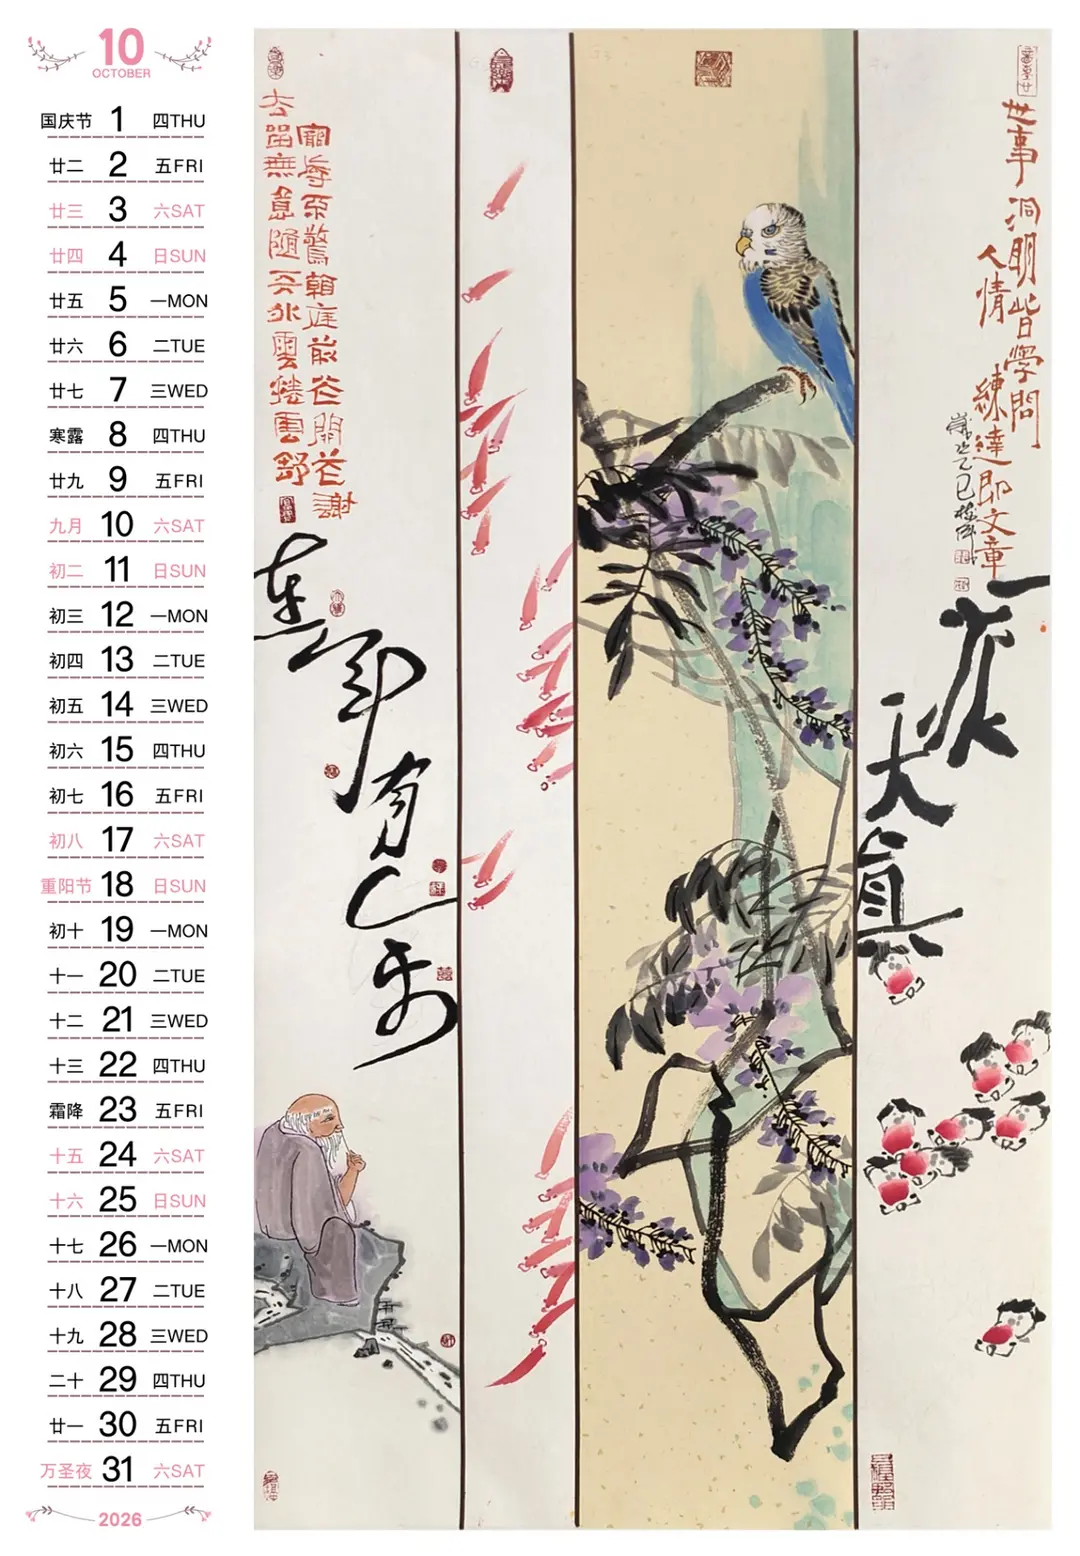 10
OCTOBER
国庆节 1 四THU
廿二 2 五FRI
廿三 3 六SAT
廿四 4 日SUN
廿五 5 一MON
廿六 6 二TUE
廿七 7 三WED
寒露 8 四THU
廿九 9 五FRI
九月 10 六SAT
初二 11 日SUN
初三 12 一MON
初四 13 二TUE
初五 14 三WED
初六 15 四THU
初七 16 五FRI
初八 17 六SAT
重阳节 18 日SUN
初十 19 一MON
十一 20 二TUE
十二 21 三WED
十三 22 四THU
霜降 23 五FRI
十五 24 六SAT
十六 25 日SUN
十七 26 一MON
十八 27 二TUE
十九 28 三WED
二十 29 四THU
廿一 30 五FRI
万圣夜 31 六SAT
2026
世事洞明皆學問
人情練達即文章
乙巳
天真
寵辱不驚庭前花開花謝
去留無意隨天外雲捲雲舒